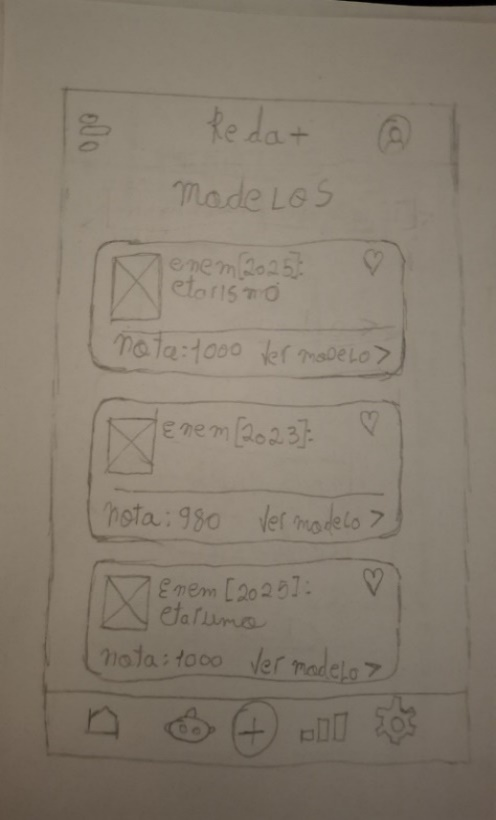 Reda+
Modelos
enem[2025]:
etarismo
nota:1000 Ver modelo >
Enem[2023]:
nota: 980 Ver modelo >
Enem [2025]:
etarismo
nota:1000 Ver modelo >